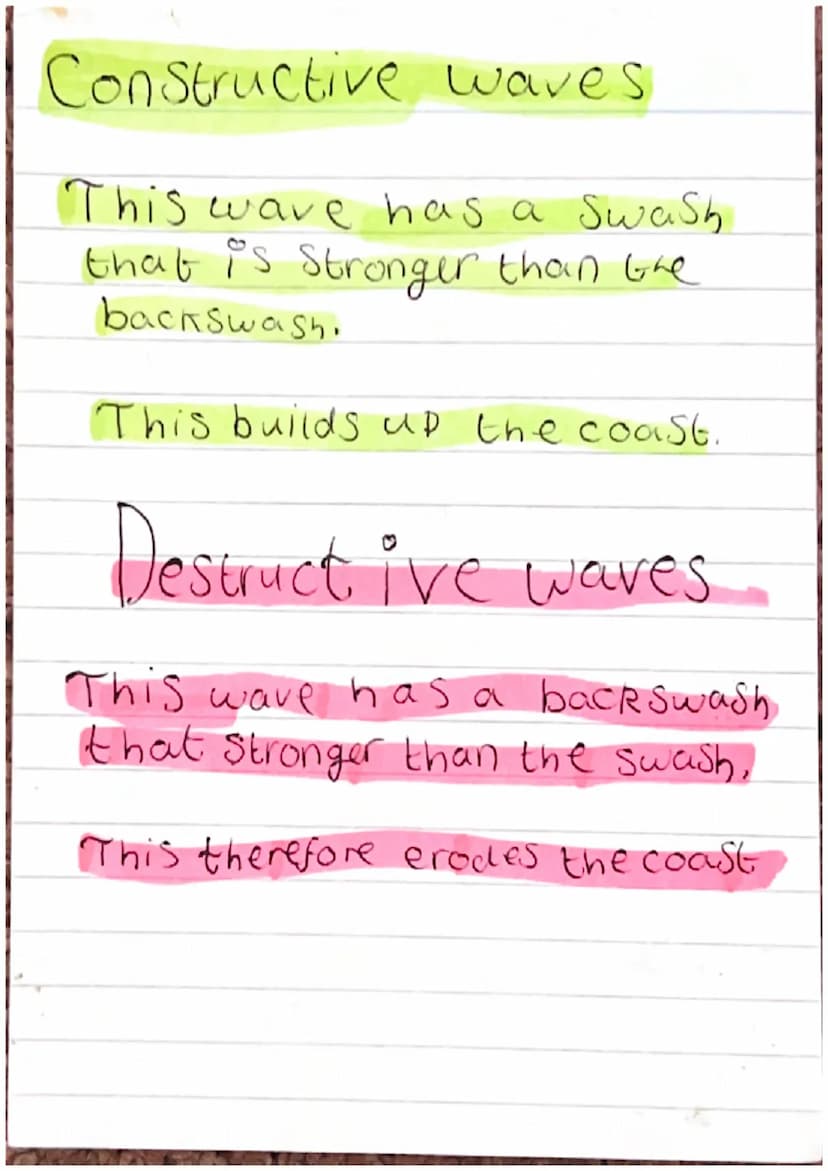 Constructive waves
This wave has a swash
that is stronger than the
backswash.
This builds up the coast.
Destructive waves
This wave has a backswash
that stronger than the swash.
This therefore erodes the coast